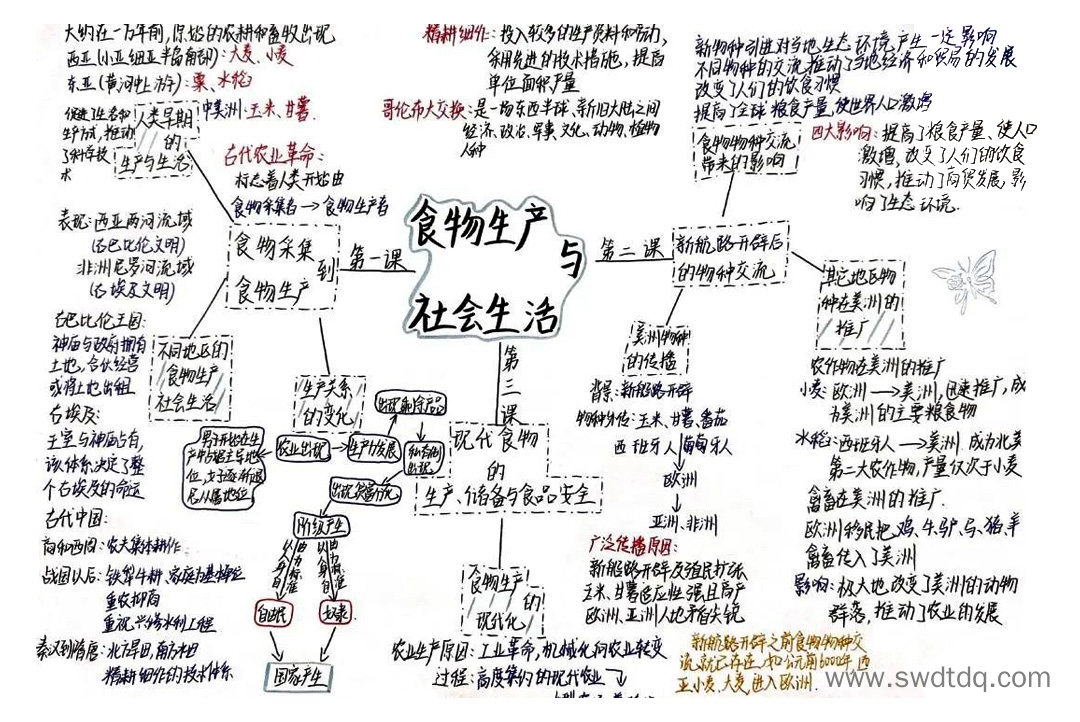 大约在一万年前,原始的农耕和畜牧出现
西亚(小亚细亚半岛南部):大麦、小麦
东亚(黄河中上游):粟、水稻
中美洲:玉米、甘薯.
人类早期
的
生产与生活
古代农业革命:
标志着人类开始由
食物采集者→食物生产者
食物采集
到
食物生产
第一课
表现:西亚两河流域
(古巴比伦文明)
非洲尼罗河流域
(古埃及文明)
不同地区的
食物生产
社会生活
古巴比伦王国:
神庙与政府拥有
土地,合伙经营
或将土地出租
古埃及:
王室与神庙占有,
该体系决定了整
个古埃及的命运
古代中国:
商和西周:农夫集体耕作.
战国以后:铁犁牛耕、家庭为基本单位
重农抑商
重视兴修水利工程
秦汉到隋唐:北方旱田,南方水田
精耕细作的技术体系
生产关系
的变化
农业出现
生产力发展
出现剩余产品
私有制
出现
出现贫富分化
男子开始在生
产中占据主导地
位,女子逐渐退
居从属地位
阶级产生
自由民
奴隶
国家产生
食物生产
与
社会生活
精耕细作:投入较多的生产资料和劳动,
采用先进的技术措施,提高
单位面积产量
哥伦布大交换:是一场东西半球、新旧大陆之间
经济、政治、军事、文化、动物、植物
人种
第三课
现代食物
的
生产、储备与食品安全
食物生产
的
现代化
农业生产原因:工业革命,机械化向农业转变
过程:高度集约的现代农业
第二课
新航路开辟后
的物种交流
食物物种交流
带来的影响
新物种引进对当地生态环境产生一定影响
不同物种的交流推动了当地经济和贸易的发展
改变了人们的饮食习惯
提高了全球粮食产量,使世界人口激增
四大影响:提高了粮食产量、使人口
激增,改变了人们的饮食
习惯,推动了商贸发展,影
响了生态环境.
美洲物种
的传播
背景:新航路开辟
物种外传:玉米、甘薯、番茄
西班牙人 葡萄牙人
欧洲
亚洲、非洲
广泛传播原因:
新航路开辟及殖民扩张
玉米、甘薯适应性强且高产
欧洲、亚洲人
其它地区物
种在美洲的
推广
农作物在美洲的推广
小麦:欧洲→美洲,迅速推广,成
为美洲的主要粮食物
水稻:西班牙人→美洲 成为北美
第二大农作物,产量仅次于小麦
禽畜在美洲的推广.
欧洲移民把鸡、牛、驴、马、猪、羊
禽畜传入了美洲
影响:极大地改变了美洲的动物
群落,推动了农业的发展
新航路开辟之前食物物种交
流就已存在,如公元前6000年西
亚小麦、大麦,进入欧洲.
www.swdtdq.com